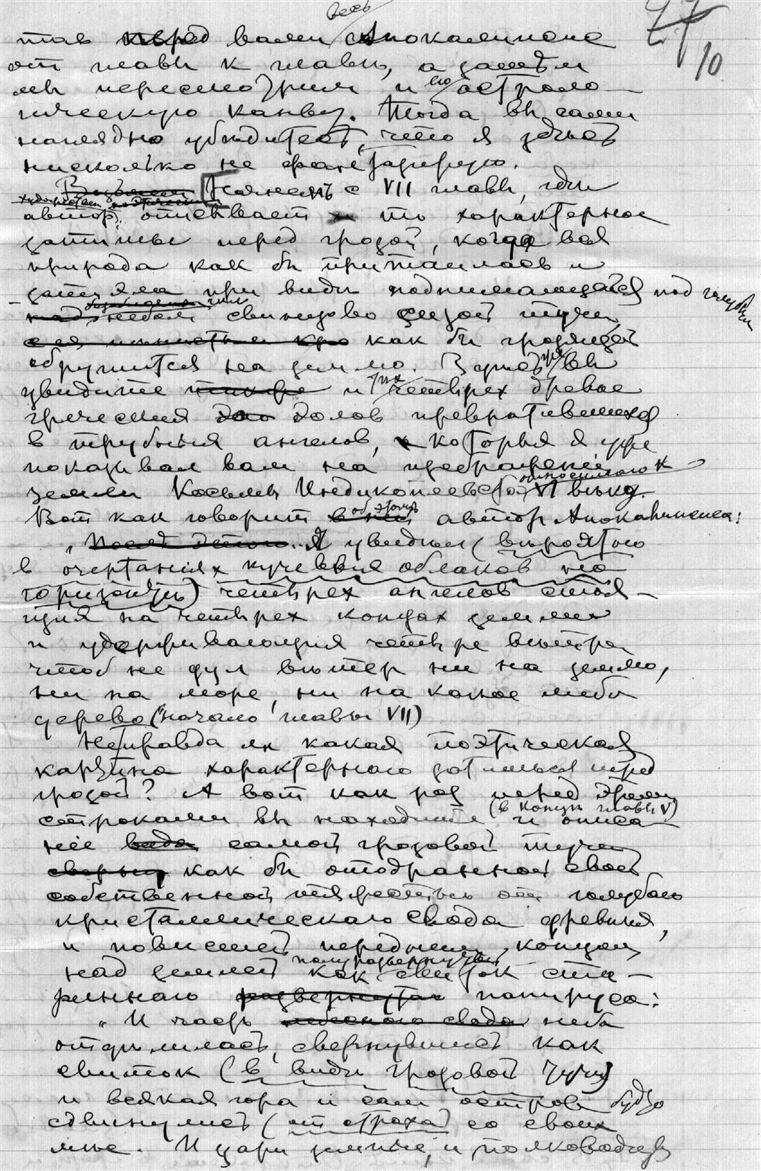 27
10
весь
тав перед вами Апокалипсис
от главы к главе, а затем
мы пересмотрим и его астроло-
гическую канву. Тогда вы сами
наглядно убедитесь, что я здесь
нисколько не фантазирую.
Начнем с VII главы, где
автор описывает то характерное
затишье перед грозой, когда вся
природа как бы притаилась и
при виде поднимающейся под
свинцово сизой тучи
как бы грозящей
обрушиться на землю. Здесь вы
увидите и четырех древне
греческих Эолов превратившихся
в трубных ангелов, которых я уже
показывал вам на изображении
земли Косьмы Индикоплевста относимого к VI веку.
Вот как говорит об этом автор Апокалипсиса:
„Я увидел (вероятно
в очертаниях кучевых облаков на
горизонте) четырех ангелов стоя-
щих на четырех концах земли
и удерживающих четыре ветра
чтоб не дул ветер ни на землю,
ни на море, ни на какое либо
дерево (начало главы VII)
Неправда ли какая поэтическая
картина характерного затишья перед
грозой? А вот как раз перед этими
строками вы находите (в конце главы V) и описа
ние самой грозовой тучи
как бы отодранной своей
собственной тяжестью от голубого
кристаллического свода древних,
и повисшей передним концом
над землей как полуразвернутый свиток ста-
ринного папируса:
„И часть неба
отделилась, свернувшись как
свиток (в виде грозовой тучи)
и всякая гора и сам остров будто
сдвинулись (от страха) со своих
мест. И цари земные, и полководцы